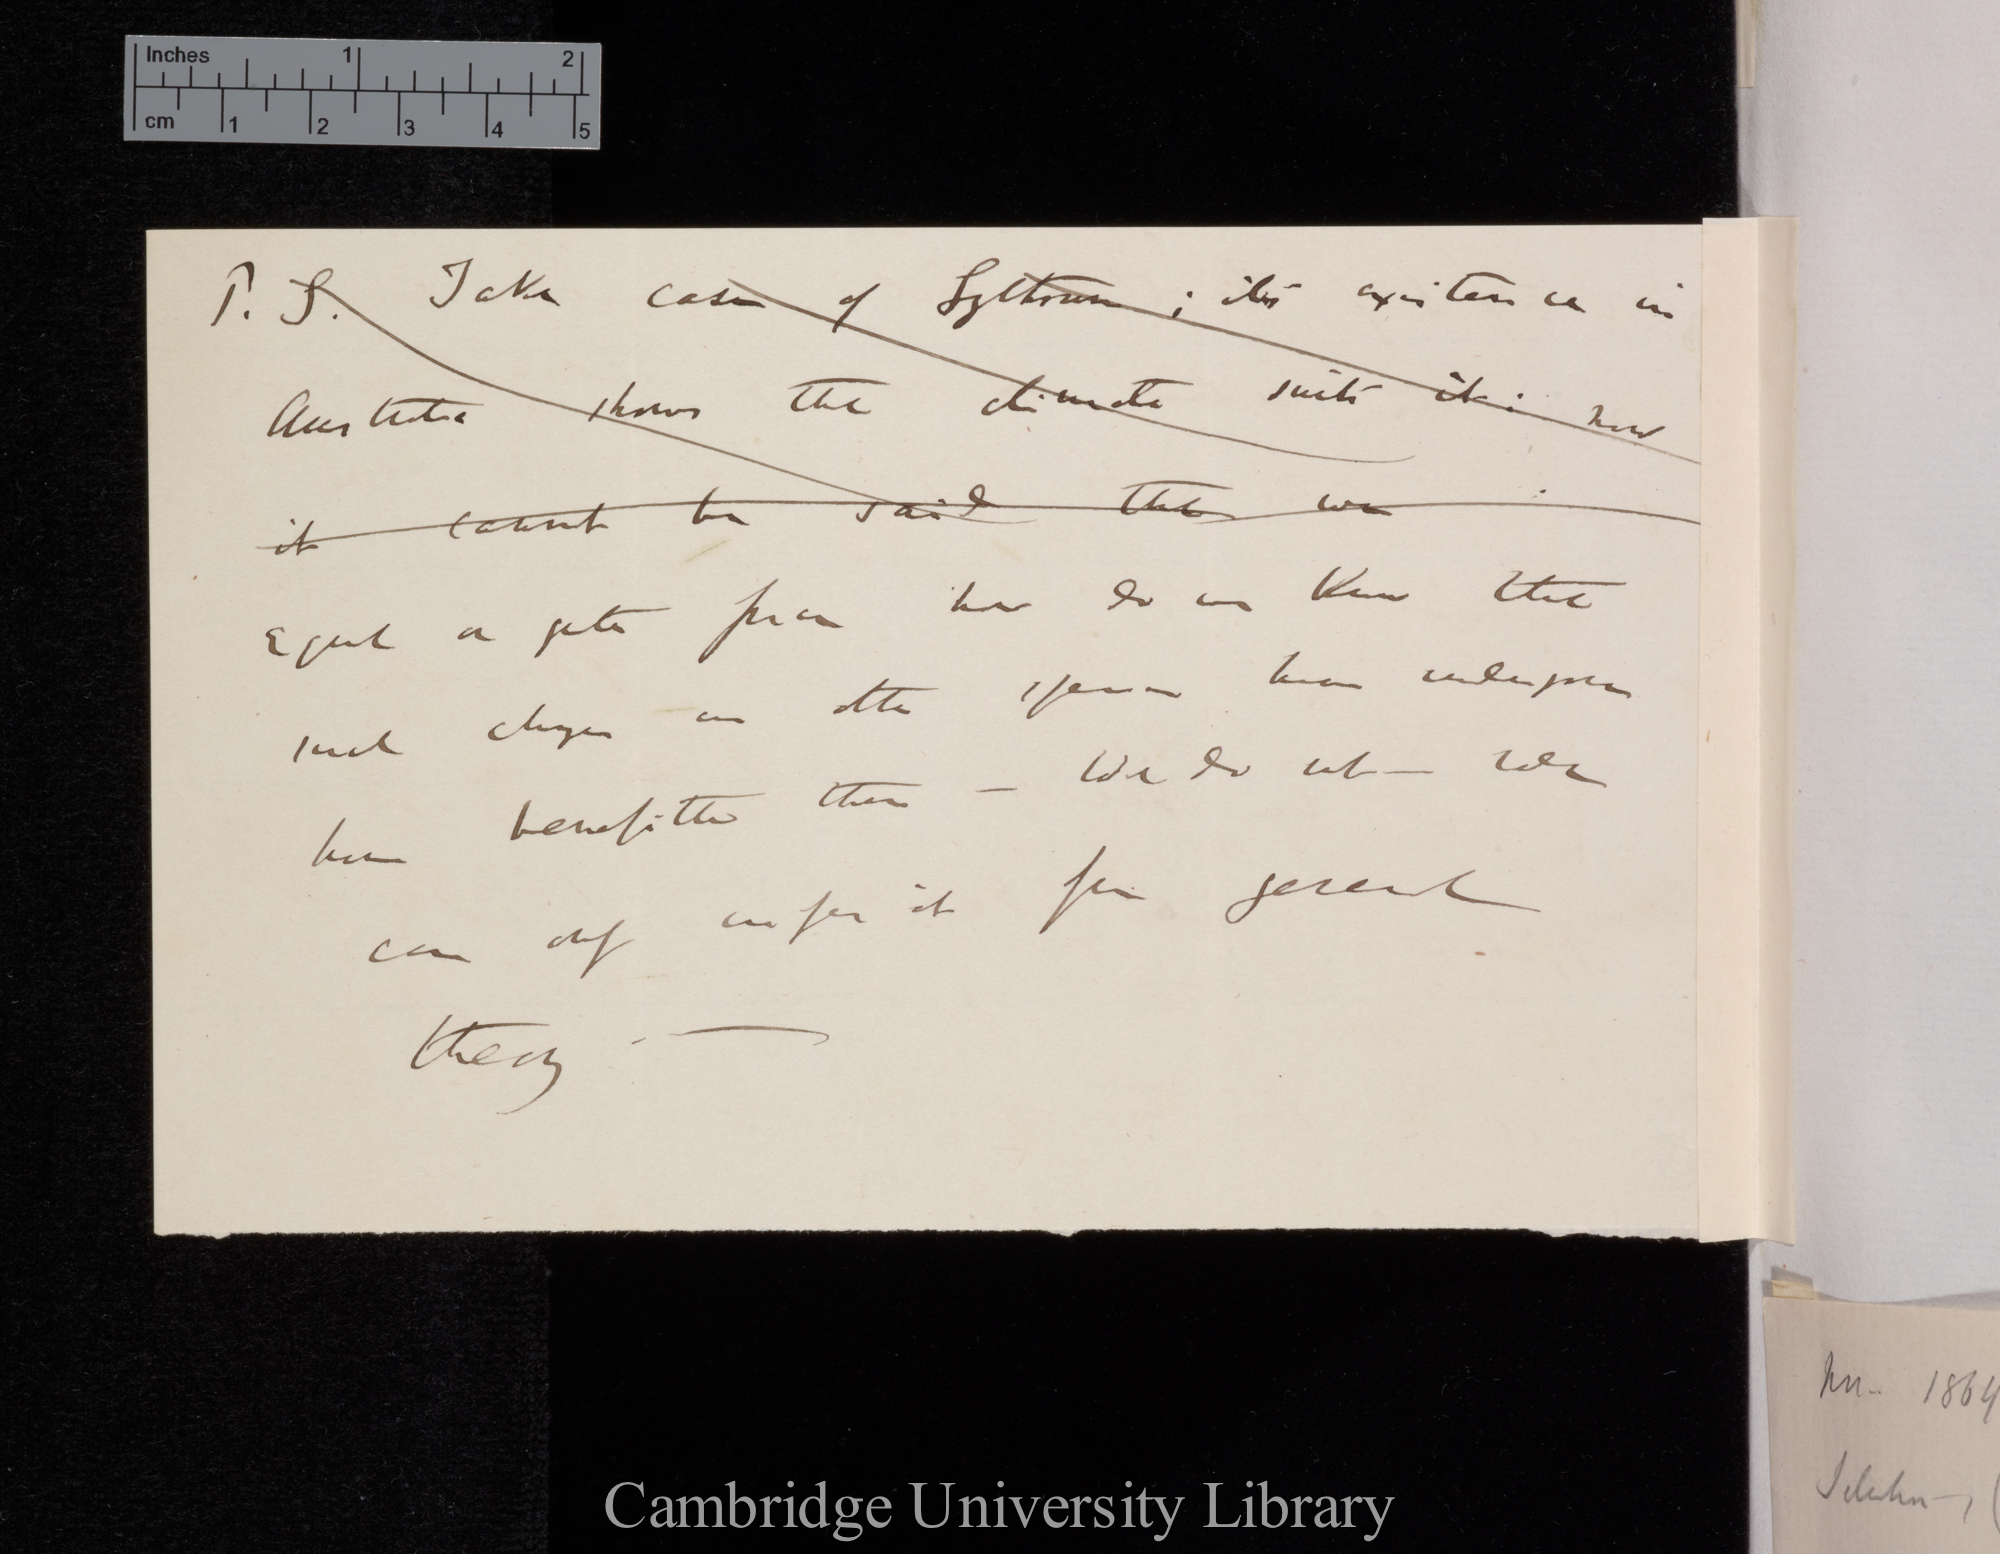 Inches 1 2
cm 1 2 3 4 5
P.S. Take case of Lythrum; its existence in
Australia shows the climate suits it; now
it cannot be said that we
Equal or gter from how do we know that
such changes as other species have undergone
have benefitted them — We do not —
can only infer it from general
theory. —
1864
Cambridge University Library